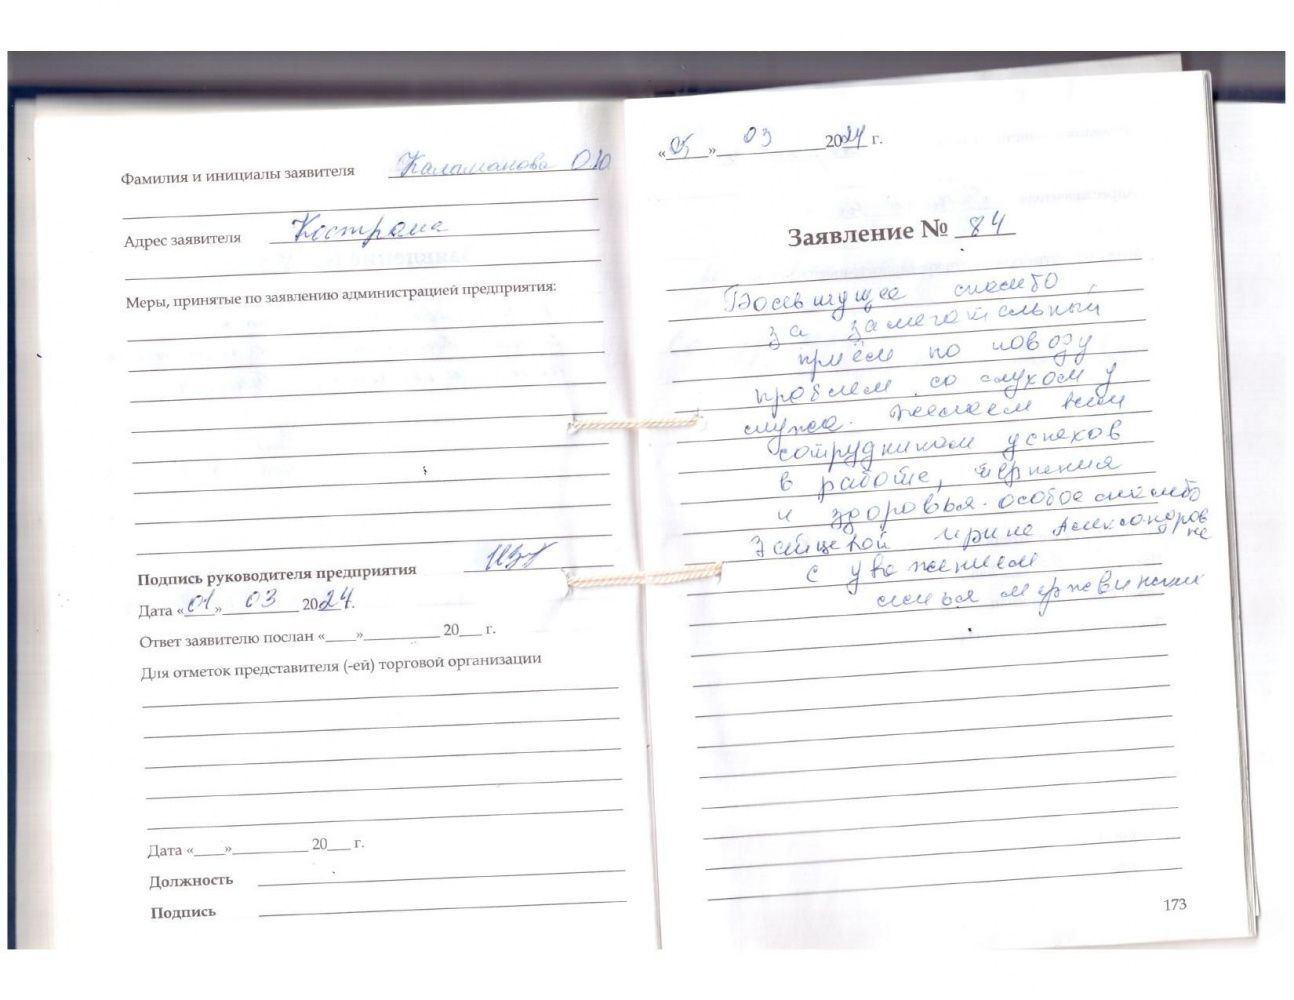 Фамилия и инициалы заявителя Каламанова О.Ю.
Адрес заявителя Кострома
Меры, принятые по заявлению администрацией предприятия:
Подпись руководителя предприятия
Дата «01» 03 2024.
Ответ заявителю послан «____»__________ 20___ г.
Для отметок представителя (-ей) торговой организации
Дата «____»__________ 20___ г.
Должность
Подпись
«05» 03 2024 г.
Заявление № 84
спасибо
за замечательный
приём по поводу
проблем со слухом у
мужа. Желаем всем
сотрудникам успехов
в работе, терпения
и здоровья. особое спасибо
Зайцевой Ирине Александровне
с уважением
семья
173